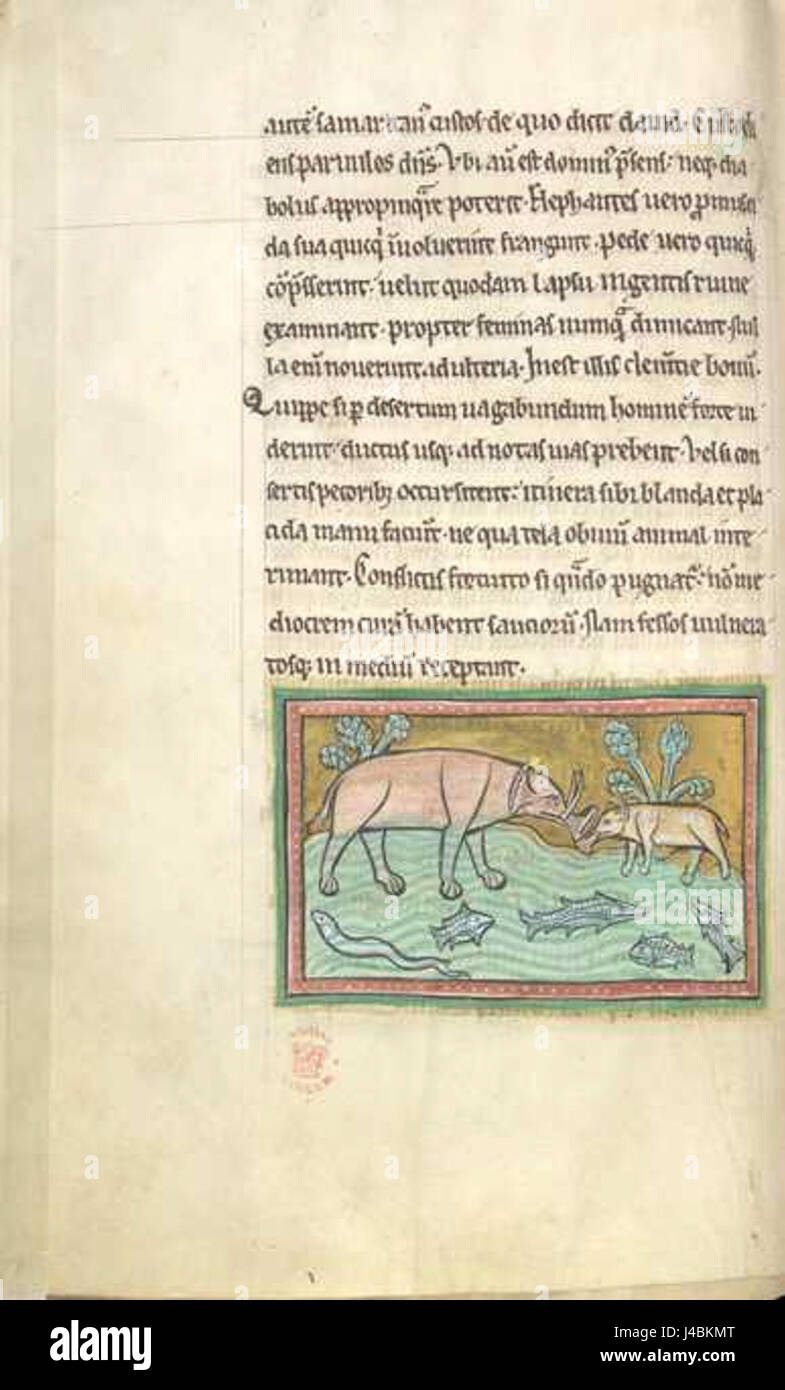 autē samaritan᷒ custos· de quo dicit dauid· Custodi
ens paruulos dn̄s· Vbi au̅ est domin᷒ p̄sens· neq; dia
bolus appropinq̄re poterit· Elephantes uero p̱muscì
da sua quicq̇ īuoluerint frangunt· pede uero quicq̇
cōp̄sserint· uelut quodam lapsu ingentis ruine
examinant· propter feminas numq̄ dimicant· Nul
la eni̅ nouerunt adulteria· Inest illis clem̄tie bonū·
Quippe si ꝑ desertum uagabundum hominē forte ui
derint· ductus usq; ad notas uias prebent· Vel si con
sertis pecorib; occursitent· itinera sibi blanda et pla
cida manu faciūt· ne qua tela obuiū animal inte
rimant· Conflictu fortuito si qn̄do pugnat᷑· nō me
diocrem curā habent sauciorū· Nam fessos uulnera
tosq; in mediū receptant·
a
alamy stock photo
Image ID: J4BKMT
www.alamy.com